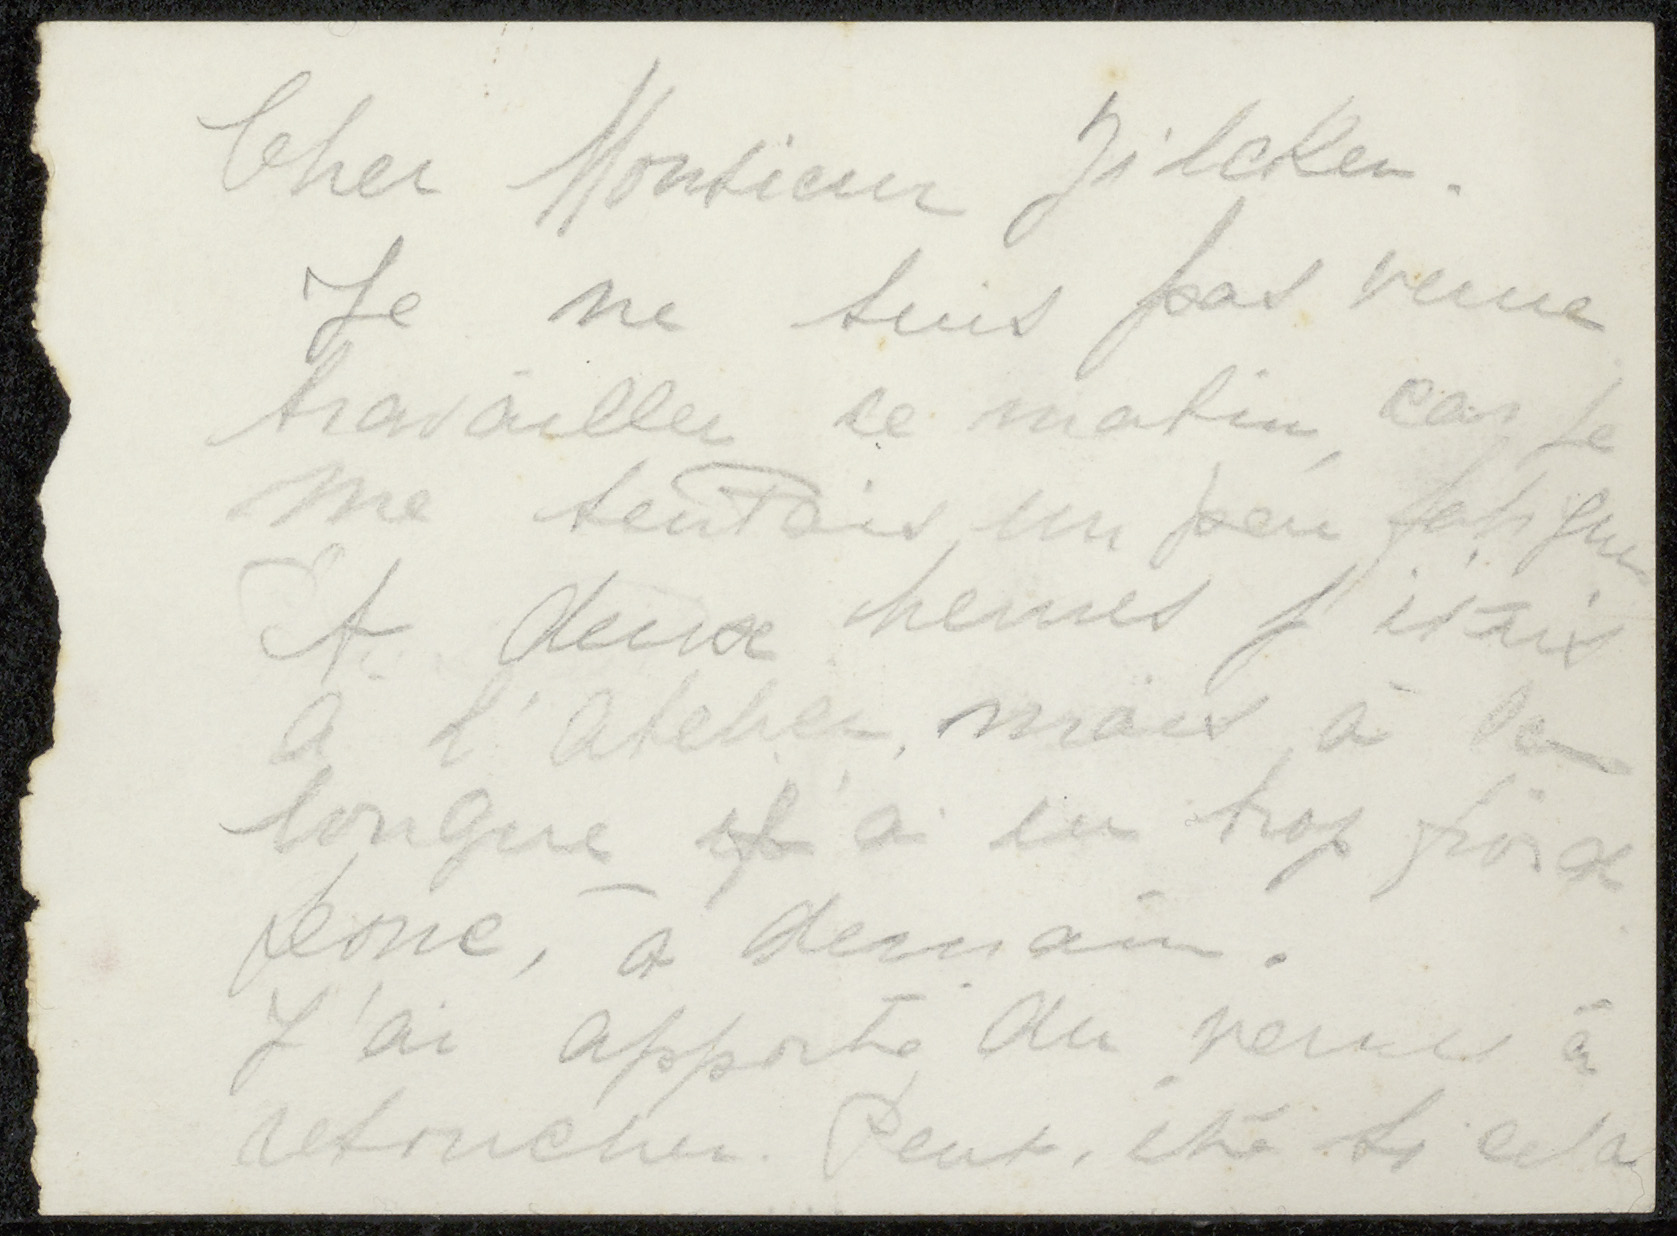 Cher Monsieur Zilcken.
Je ne suis pas venue
travailler ce matin, car je
me sentais un peu fatigué
A deux heures j'étais
à l'atelier, mais à la
longue il a eu trop froid
donc, à demain.
J'ai apporté du vernis à
retoucher. Peut, être si cela